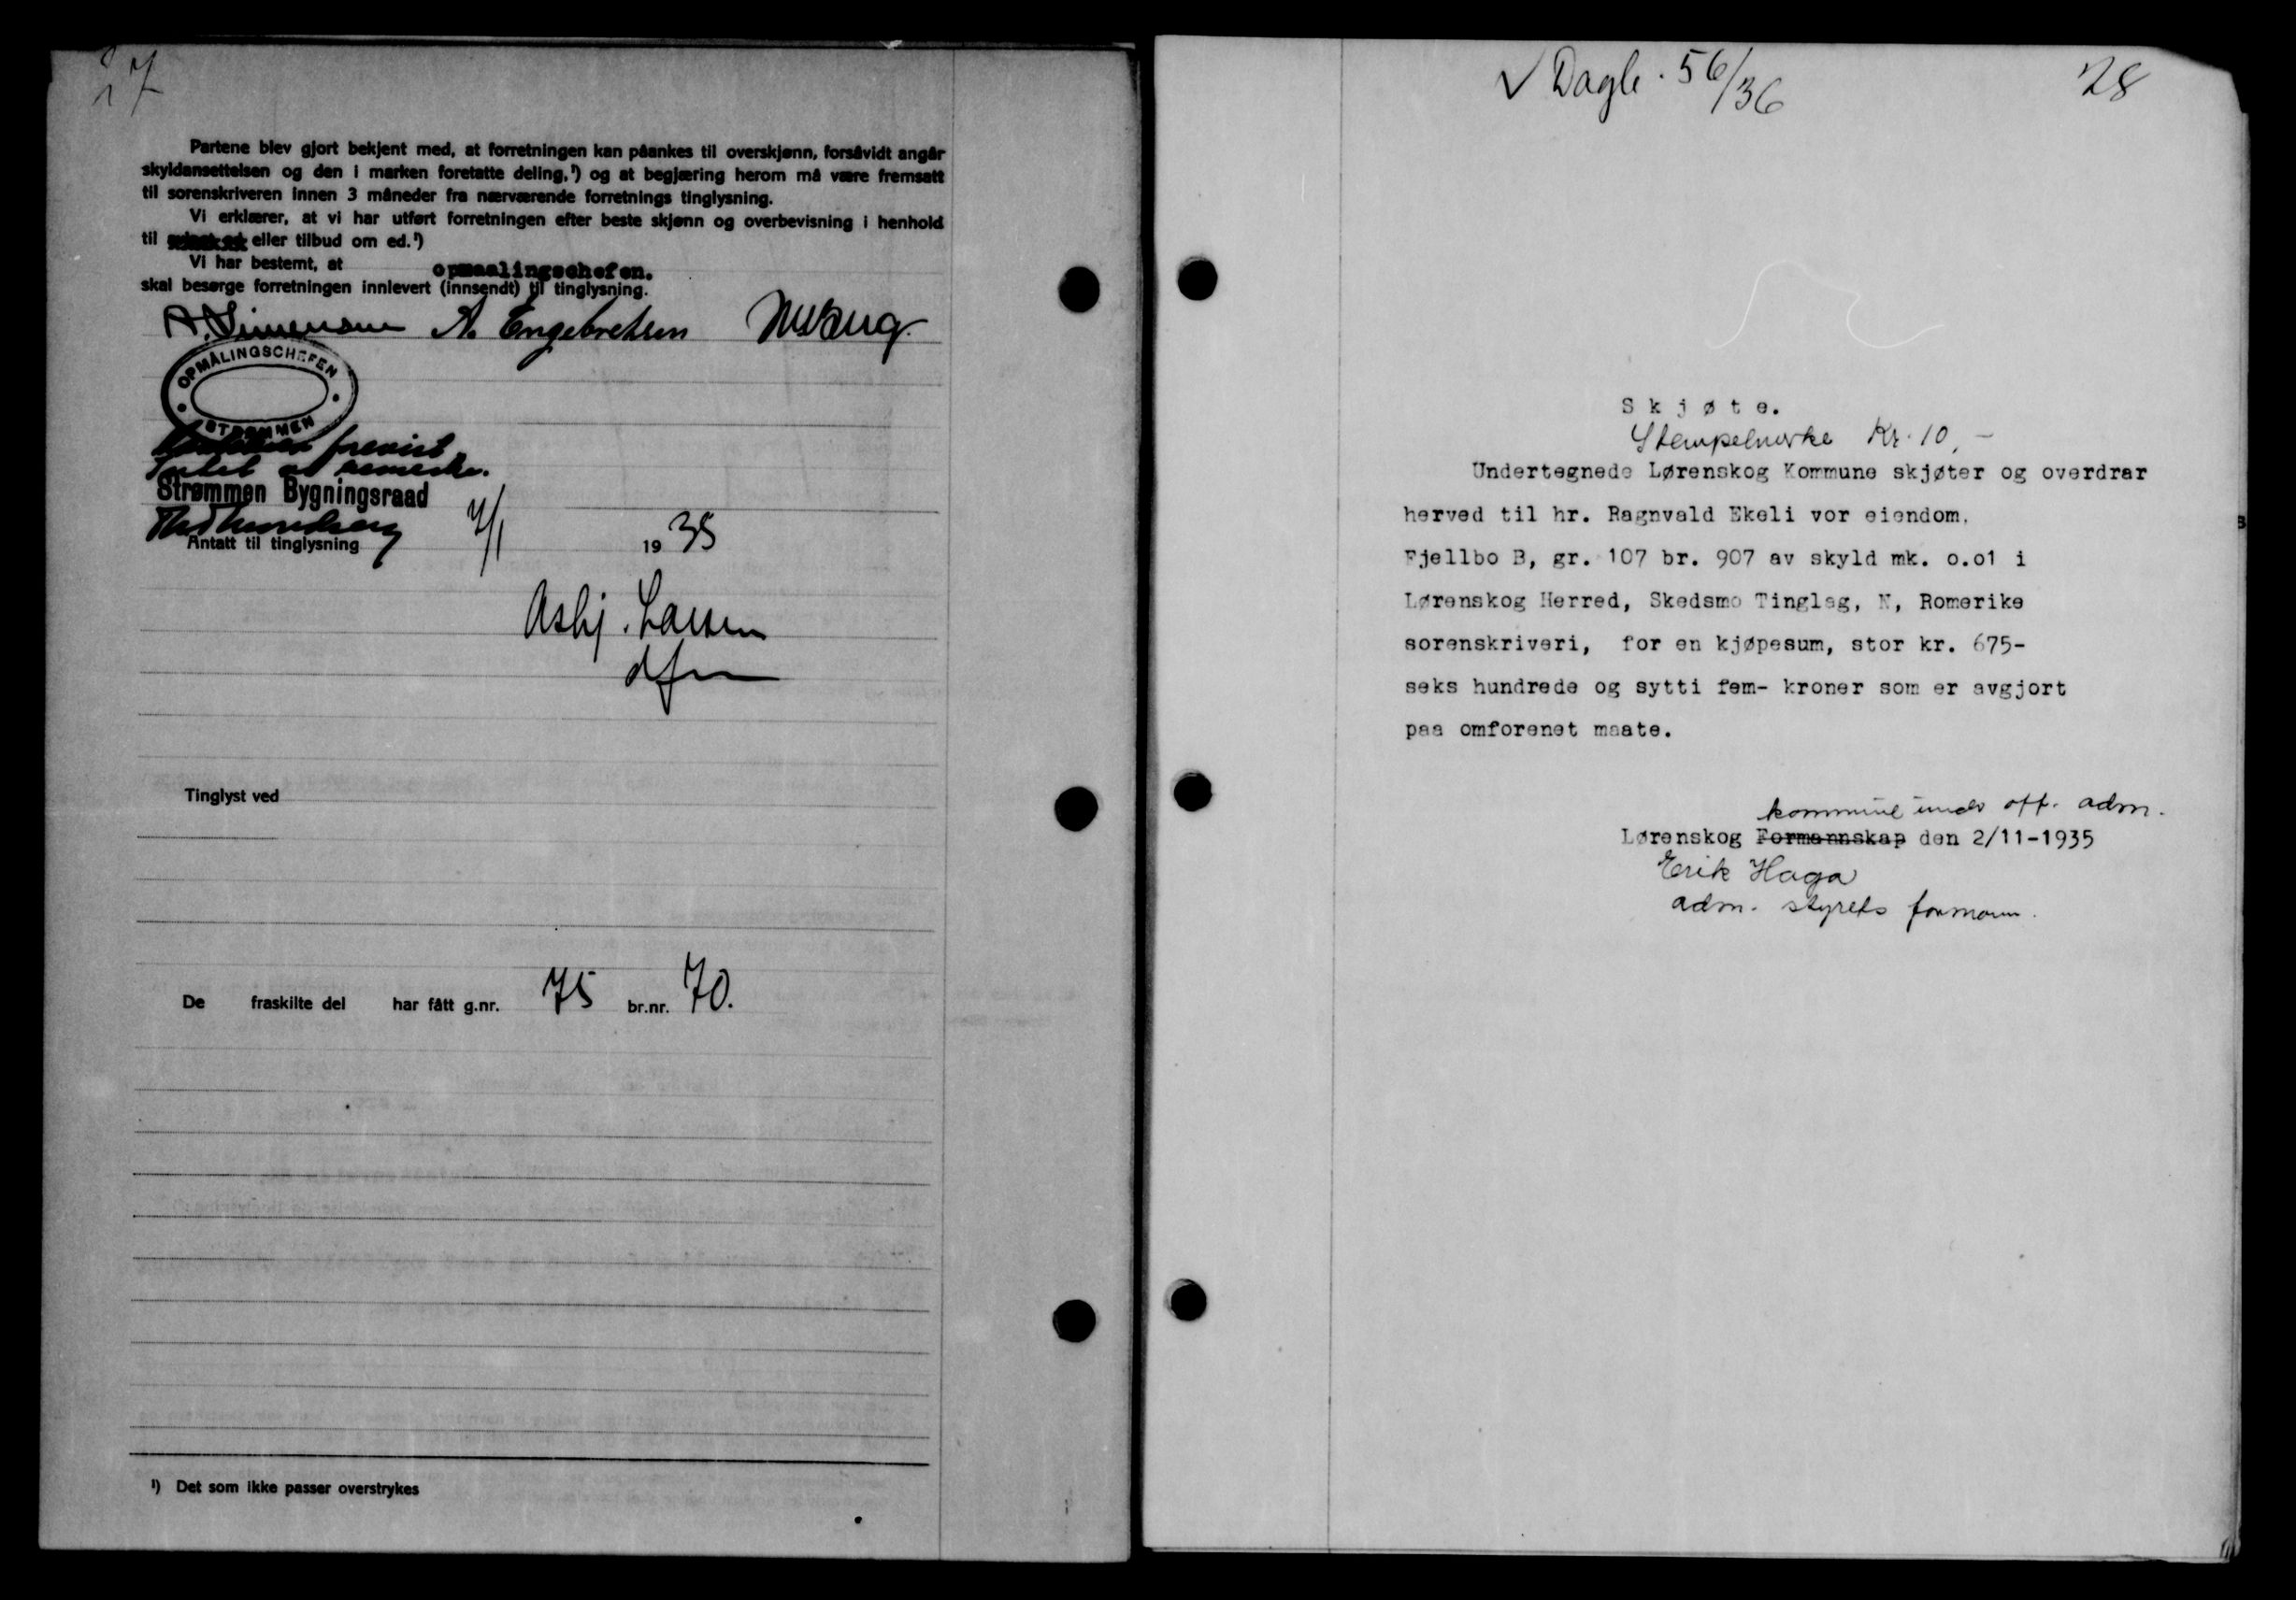 27
Partene blev gjort bekjent med, at forretningen kan påankes til overskjønn, forsåvidt angår
skyldansettelsen og den i marken foretatte deling,¹) og at begjæring herom må være fremsatt
til sorenskriveren innen 3 måneder fra nærværende forretnings tinglysning.
Vi erklærer, at vi har utført forretningen efter beste skjønn og overbevisning i henhold
til eller tilbud om ed.¹)
Vi har bestemt, at opmaalingschefen.
skal besørge forretningen innlevert (innsendt) til tinglysning.
A. Simensen A. Engebretsen
OPMÅLINGSCHEFEN
STRØMMEN
forevist
Intet at bemerke.
Strømmen Bygningsraad
Antatt til tinglysning 4/1 1935
Asbj. Larsen
dfm
Tinglyst ved
De fraskilte del har fått g.nr. 75 br.nr. 70.
¹) Det som ikke passer overstrykes
✓ Dagb. 56/36
28
Skjøte.
Stempelmerke Kr. 10,-
Undertegnede Lørenskog Kommune skjøter og overdrar
herved til hr. Ragnvald Ekeli vor eiendom,
Fjellbo B, gr. 107 br. 907 av skyld mk. o.o1 i
Lørenskog Herred, Skedsmo Tinglag, N, Romerike
sorenskriveri, for en kjøpesum, stor kr. 675-
seks hundrede og sytti fem- kroner som er avgjort
paa omforenet maate.
kommune under off. adm.
Lørenskog Formannskap den 2/11-1935
Erik Haga
adm. styrets formann.